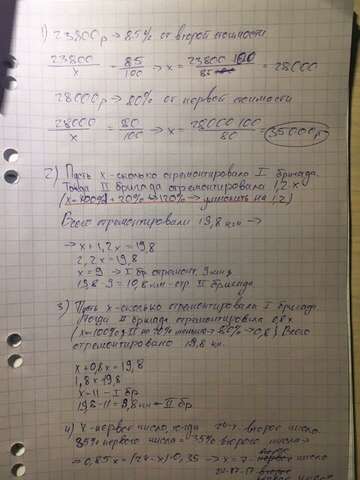 1) 23800р → 85% от второй стоимости
23800/x = 85/100 → x = 23800·100/85 = 28000
28000р → 80% от первой стоимости
28000/x = 80/100 → x = 28000·100/80 = 35000р
2) Пусть x - сколько отремонтировала I бригада.
Тогда II бригада отремонтировала 1,2x
(x=100% + 20% → 120% → умножить на 1,2)
Всего отремонтировали 19,8 км →
→ x + 1,2x = 19,8
2,2x = 19,8
x = 9 → I бр отремонт. 9 км,
19,8 - 9 = 10,8 км - отр II бригада.
3) Пусть x - сколько отремонтировала I бригада.
Тогда II бригада отремонтировала 0,8x
(x=100%, II на 20% меньше → 80% → 0,8) Всего
отремонтировано 19,8 км.
x + 0,8x = 19,8
1,8x = 19,8
x = 11 - I бр
19,8 - 11 = 8,8 км - II бр.
4) x - первое число, тогда 24-x - второе число
85% первого числа = 35% второго числа →
→ 0,85x = (24-x)·0,35 → x = 7 - первое
второе